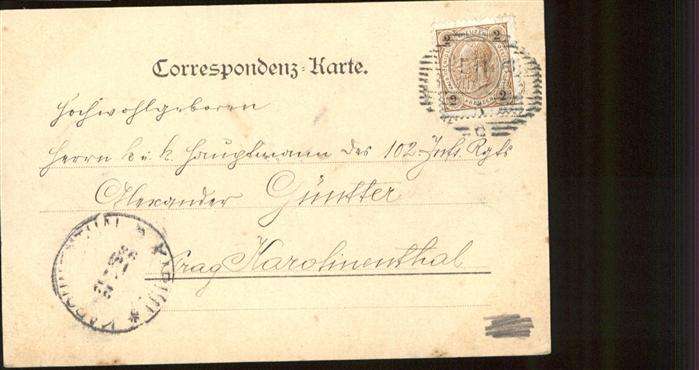 Correspondenz-Karte.
2 2
2 2
Hochwohlgeboren
Herrn k. u. k. Hauptmann des 102. Inf. Rgts
Alexander Günther
Prag Karolinenthal